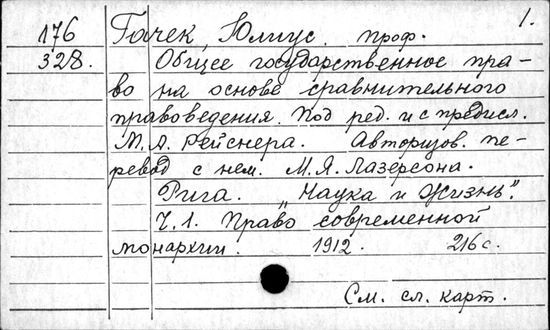 1.
176 Гачек, Юлиус, проф.
328. Общее государственное пра-
во на основе сравнительного
правоведения. Под ред. и с предисл.
М.А. Рейснера. Авторизов. пе-
ревод с нем. М.Я. Лазерсона.
Рига. "Наука и Жизнь".
Ч.1. Право современной
монархии. 1912. 216 с.
См. сл. карт.